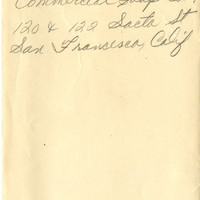 Commercial Soap Co.
120 & 122 Sacto St
San Francisco, Calif